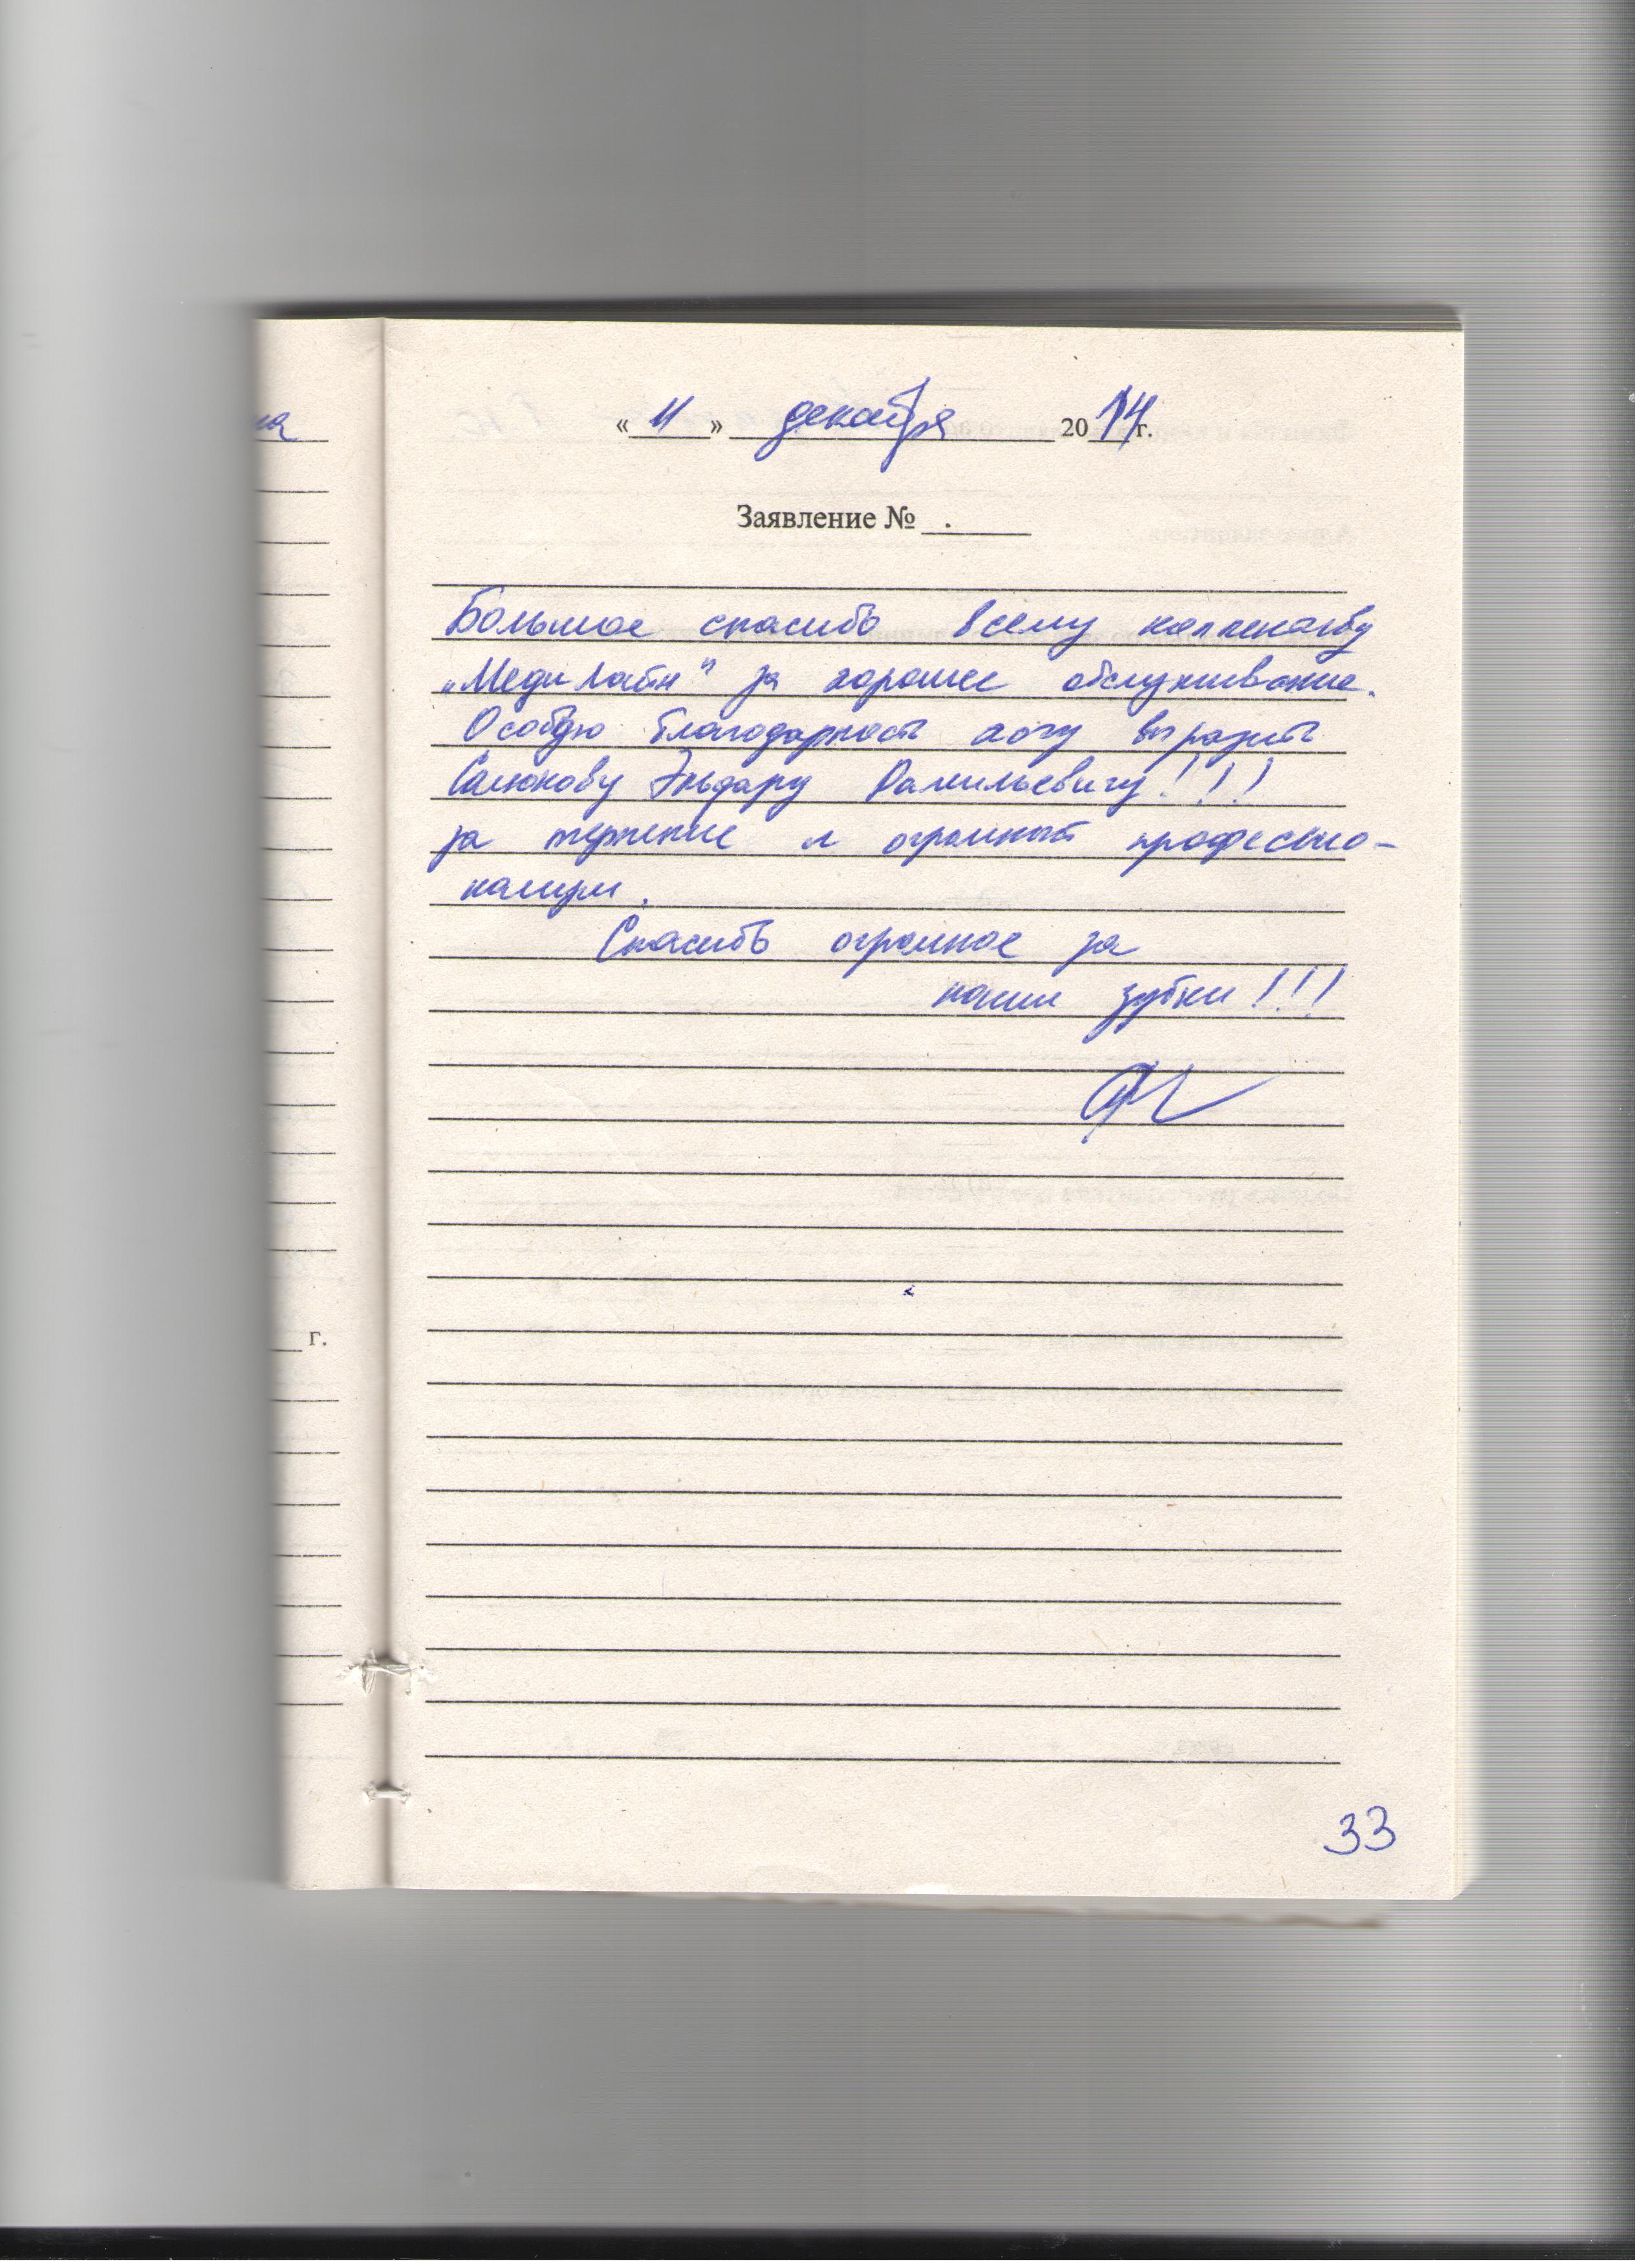 « 11 » декабря 2014 г.
Заявление №
Большое спасибо всему коллективу
„МедиЛайн" за хорошее обслуживание.
Особую благодарность хочу выразить
Салюкову Эльдару Рамильевичу!!!
за терпение и огромный професио-
нализм.
Спасибо огромное за
наши зубки!!!
г.
33